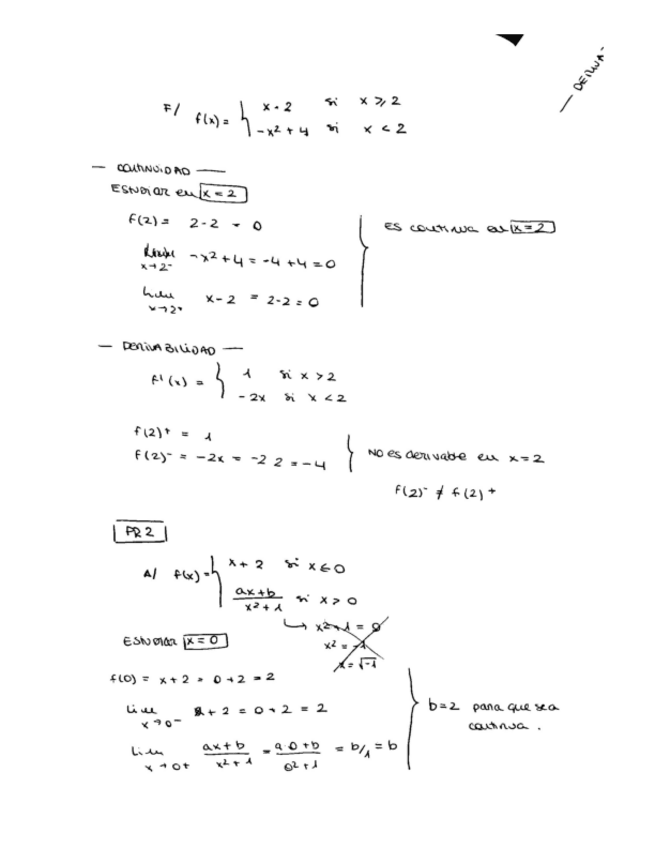 — DERIVA-
F/ f(x) = { x - 2 si x ≥ 2
-x² + 4 si x < 2
— CONTINUIDAD —
ESTUDIAR en x = 2
f(2) = 2-2 = 0
x→2⁻ -x²+4 = -4+4 = 0
lim x→2⁺ x-2 = 2-2 = 0
Es continua en x=2
— DERIVABILIDAD —
f'(x) = { 1 si x > 2
-2x si x < 2
f(2)⁺ = 1
f(2)⁻ = -2x = -2 2 = -4
No es derivable en x = 2
f(2)⁻ ≠ f(2)⁺
PR 2
A/ f(x) = { x + 2 si x ≤ 0
ax+b / x²+1 si x > 0
↳ x²+1 = 0
x² = -1
x = √-1
ESTUDIAR x = 0
f(0) = x + 2 = 0 + 2 = 2
lim x→0⁻ x + 2 = 0 + 2 = 2
lim x→0⁺ ax+b / x²+1 = a·0+b / 0²+1 = b/1 = b
b=2 para que sea
continua.